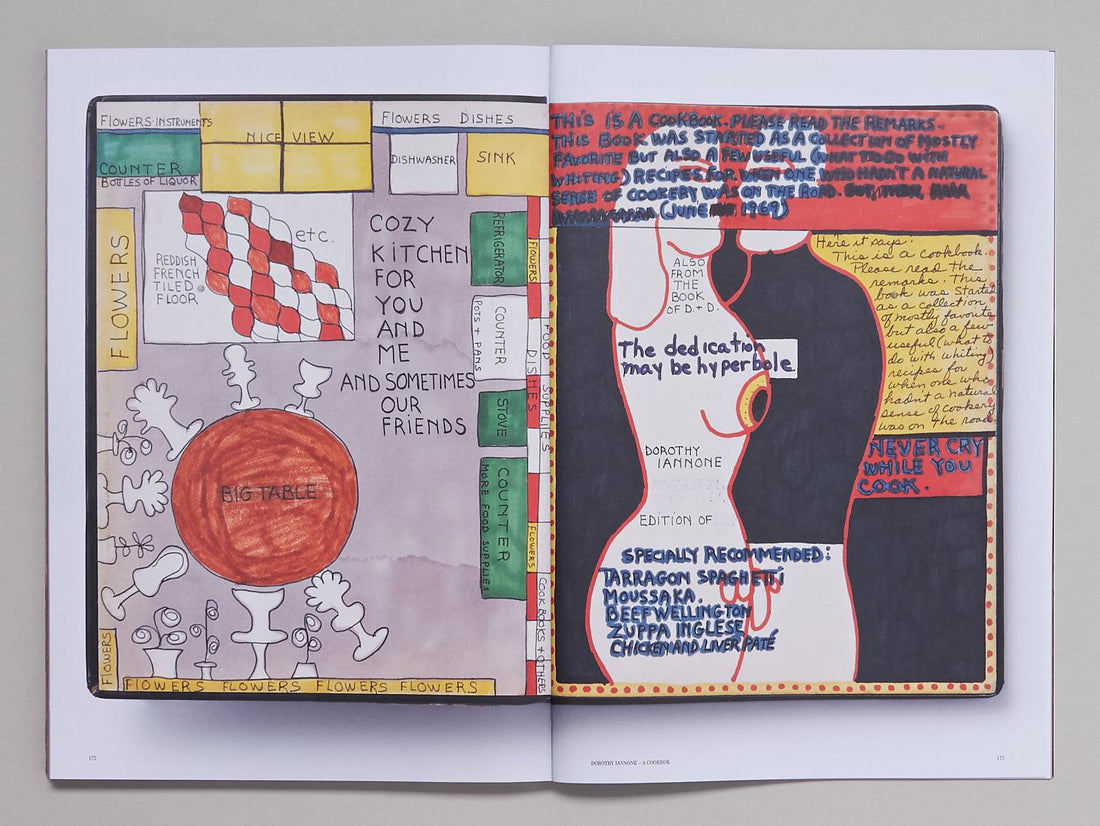 FLOWERS-INSTRUMENTS
NICE VIEW
FLOWERS DISHES
COUNTER
BOTTLES OF LIQUOR
DISHWASHER
SINK
FLOWERS
REDDISH
FRENCH
TILED
FLOOR
etc.
COZY
KITCHEN
FOR
YOU
AND
ME
AND SOMETIMES
OUR
FRIENDS
REFRIGERATOR
COUNTER
POTS + PANS
STOVE
COUNTER
MORE FOOD SUPPLIES
FLOWERS
DISHES
FOOD SUPPLIES
FLOWERS
COOK BOOKS + OTHERS
BIG TABLE
FLOWERS
FLOWERS FLOWERS FLOWERS FLOWERS
172
THIS IS A COOKBOOK. PLEASE READ THE REMARKS.
THIS BOOK WAS STARTED AS A COLLECTION OF MOSTLY
FAVORITE BUT ALSO A FEW USEFUL (WHAT TO DO WITH
WHITING) RECIPES FOR WHEN ONE WHO HADN'T A NATURAL
SENSE OF COOKERY WAS ON THE ROAD.
(JUNE 1969)
ALSO
FROM
THE
BOOK
OF D. + D.
The dedication
may be hyperbole.
DOROTHY
IANNONE
EDITION OF
SPECIALLY RECOMMENDED:
TARRAGON SPAGHETTI
MOUSSAKA.
BEEF WELLINGTON
ZUPPA INGLESE
CHICKEN AND LIVER PATÉ
Here it says:
This is a cookbook.
Please read the
remarks. This
book was started
as a collection
of mostly favorite
but also a few
useful (what to
do with whiting)
recipes for
when one who
hadn't a natural
sense of cookery
was on the road
NEVER CRY
WHILE YOU
COOK.
DOROTHY IANNONE – A COOKBOOK
173